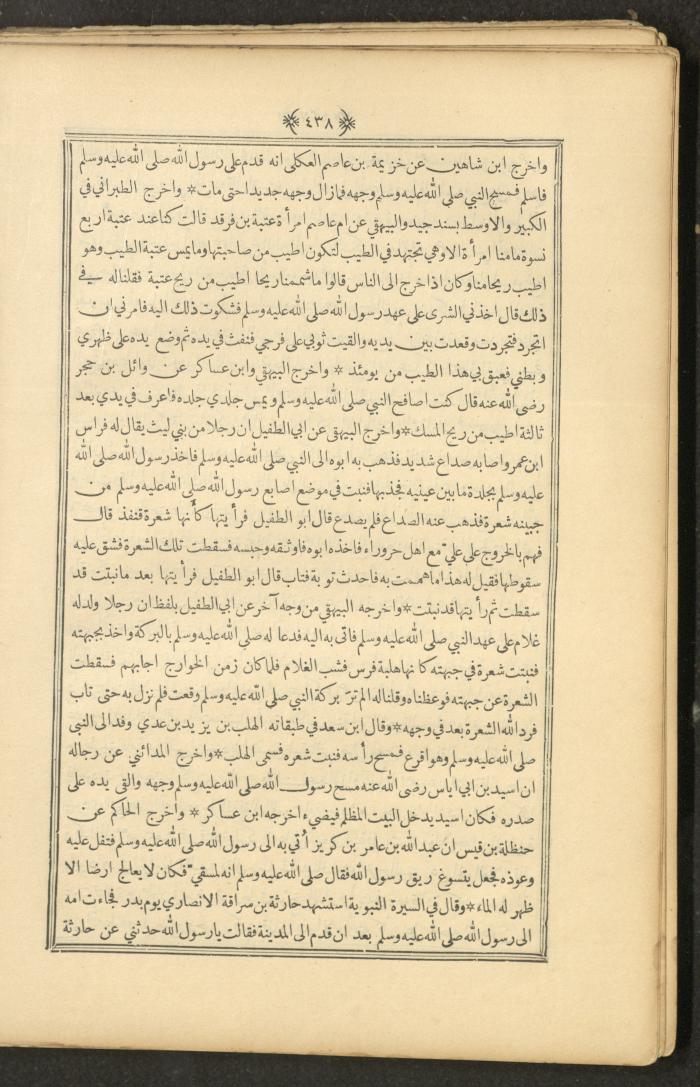 ٤٣٨
واخرج ابن شاهين عن خزيمة بن عاصم العكلى انه قدم على رسول الله صلى الله عليه وسلم
فاسلم فمسح النبي صلى الله عليه وسلم وجهه فمازال وجهه جديدا حتى مات * واخرج الطبراني في
الكبير والاوسط بسند جيد والبيهقي عن ام عاصم امرأة عتبة بن فرقد قالت كنا عند عتبة اربع
نسوة مامنا امرأة الاوهي تجتهد في الطيب لتكون اطيب من صاحبتها وما يمس عتبة الطيب وهو
اطيب ريحا منا وكان اذا خرج الى الناس قالوا ما شممنا ريحا اطيب من ريح عتبة فقلناله في
ذلك قال اخذني الشرى على عهد رسول الله صلى الله عليه وسلم فشكوت ذلك اليه فامرني ان
اتجرد فتجردت وقعدت بين يديه والقيت ثوبي على فرجي فنفث في يده ثم وضع يده على ظهري
وبطني فعبق بي هذا الطيب من يومئذ * واخرج البيهقي وابن عساكر عن وائل بن حجر
رضى الله عنه قال كنت اصافح النبي صلى الله عليه وسلم ويمس جلدي جلده فاعرف في يدي بعد
ثالثة اطيب من ريح المسك * واخرج البيهقي عن ابي الطفيل ان رجلا من بني ليث يقال له فراس
ابن عمرو اصابه صداع شديد فذهب به ابوه الى النبي صلى الله عليه وسلم فاخذ رسول الله صلى الله
عليه وسلم بجلدة مابين عينيه فجذبها فنبتت في موضع اصابع رسول الله صلى الله عليه وسلم من
جبينه شعرة فذهب عنه الصداع فلم يصدع قال ابو الطفيل فرأيتها كأنها شعرة قنفذ قال
فهم بالخروج على علي مع اهل حروراء فاخذه ابوه فاوثقه وحبسه فسقطت تلك الشعرة فشق عليه
سقوطها فقيل له هذا ما هممت به فاحدث توبة فتاب قال ابو الطفيل فرأيتها بعد مانبتت قد
سقطت ثم رأيتها قد نبتت * واخرجه البيهقي من وجه آخر عن ابي الطفيل بلفظ ان رجلا ولد له
غلام على عهد النبي صلى الله عليه وسلم فاتى به اليه فدعا له صلى الله عليه وسلم بالبركة واخذ بجبهته
فنبتت شعرة في جبهته كانها هلبة فرس فشب الغلام فلما كان زمن الخوارج اجابهم فسقطت
الشعرة عن جبهته فوعظناه وقلناله الم تر بركة النبي صلى الله عليه وسلم وقعت فلم نزل به حتى تاب
فرد الله الشعرة بعد في وجهه * وقال ابن سعد في طبقاته الهلب بن يزيد بن عدي وفد الى النبى
صلى الله عليه وسلم وهو اقرع فمسح رأسه فنبت شعره فسمى الهلب * واخرج المدائني عن رجاله
ان اسيد بن ابي اياس رضى الله عنه مسح رسول الله صلى الله عليه وسلم وجهه والقى يده على
صدره فكان اسيد يدخل البيت المظلم فيضيء اخرجه ابن عساكر * واخرج الحاكم عن
حنظلة بن قيس ان عبد الله بن عامر بن كريز أتي به الى رسول الله صلى الله عليه وسلم فتفل عليه
وعوذه فجعل يتسوغ ريق رسول الله فقال صلى الله عليه وسلم انه لمسقي فكان لا يعالج ارضا الا
ظهر له الماء * وقال في السيرة النبوية استشهد حارثة بن سراقة الانصاري يوم بدر فجاءت امه
الى رسول الله صلى الله عليه وسلم بعد ان قدم الى المدينة فقالت يارسول الله حدثني عن حارثة